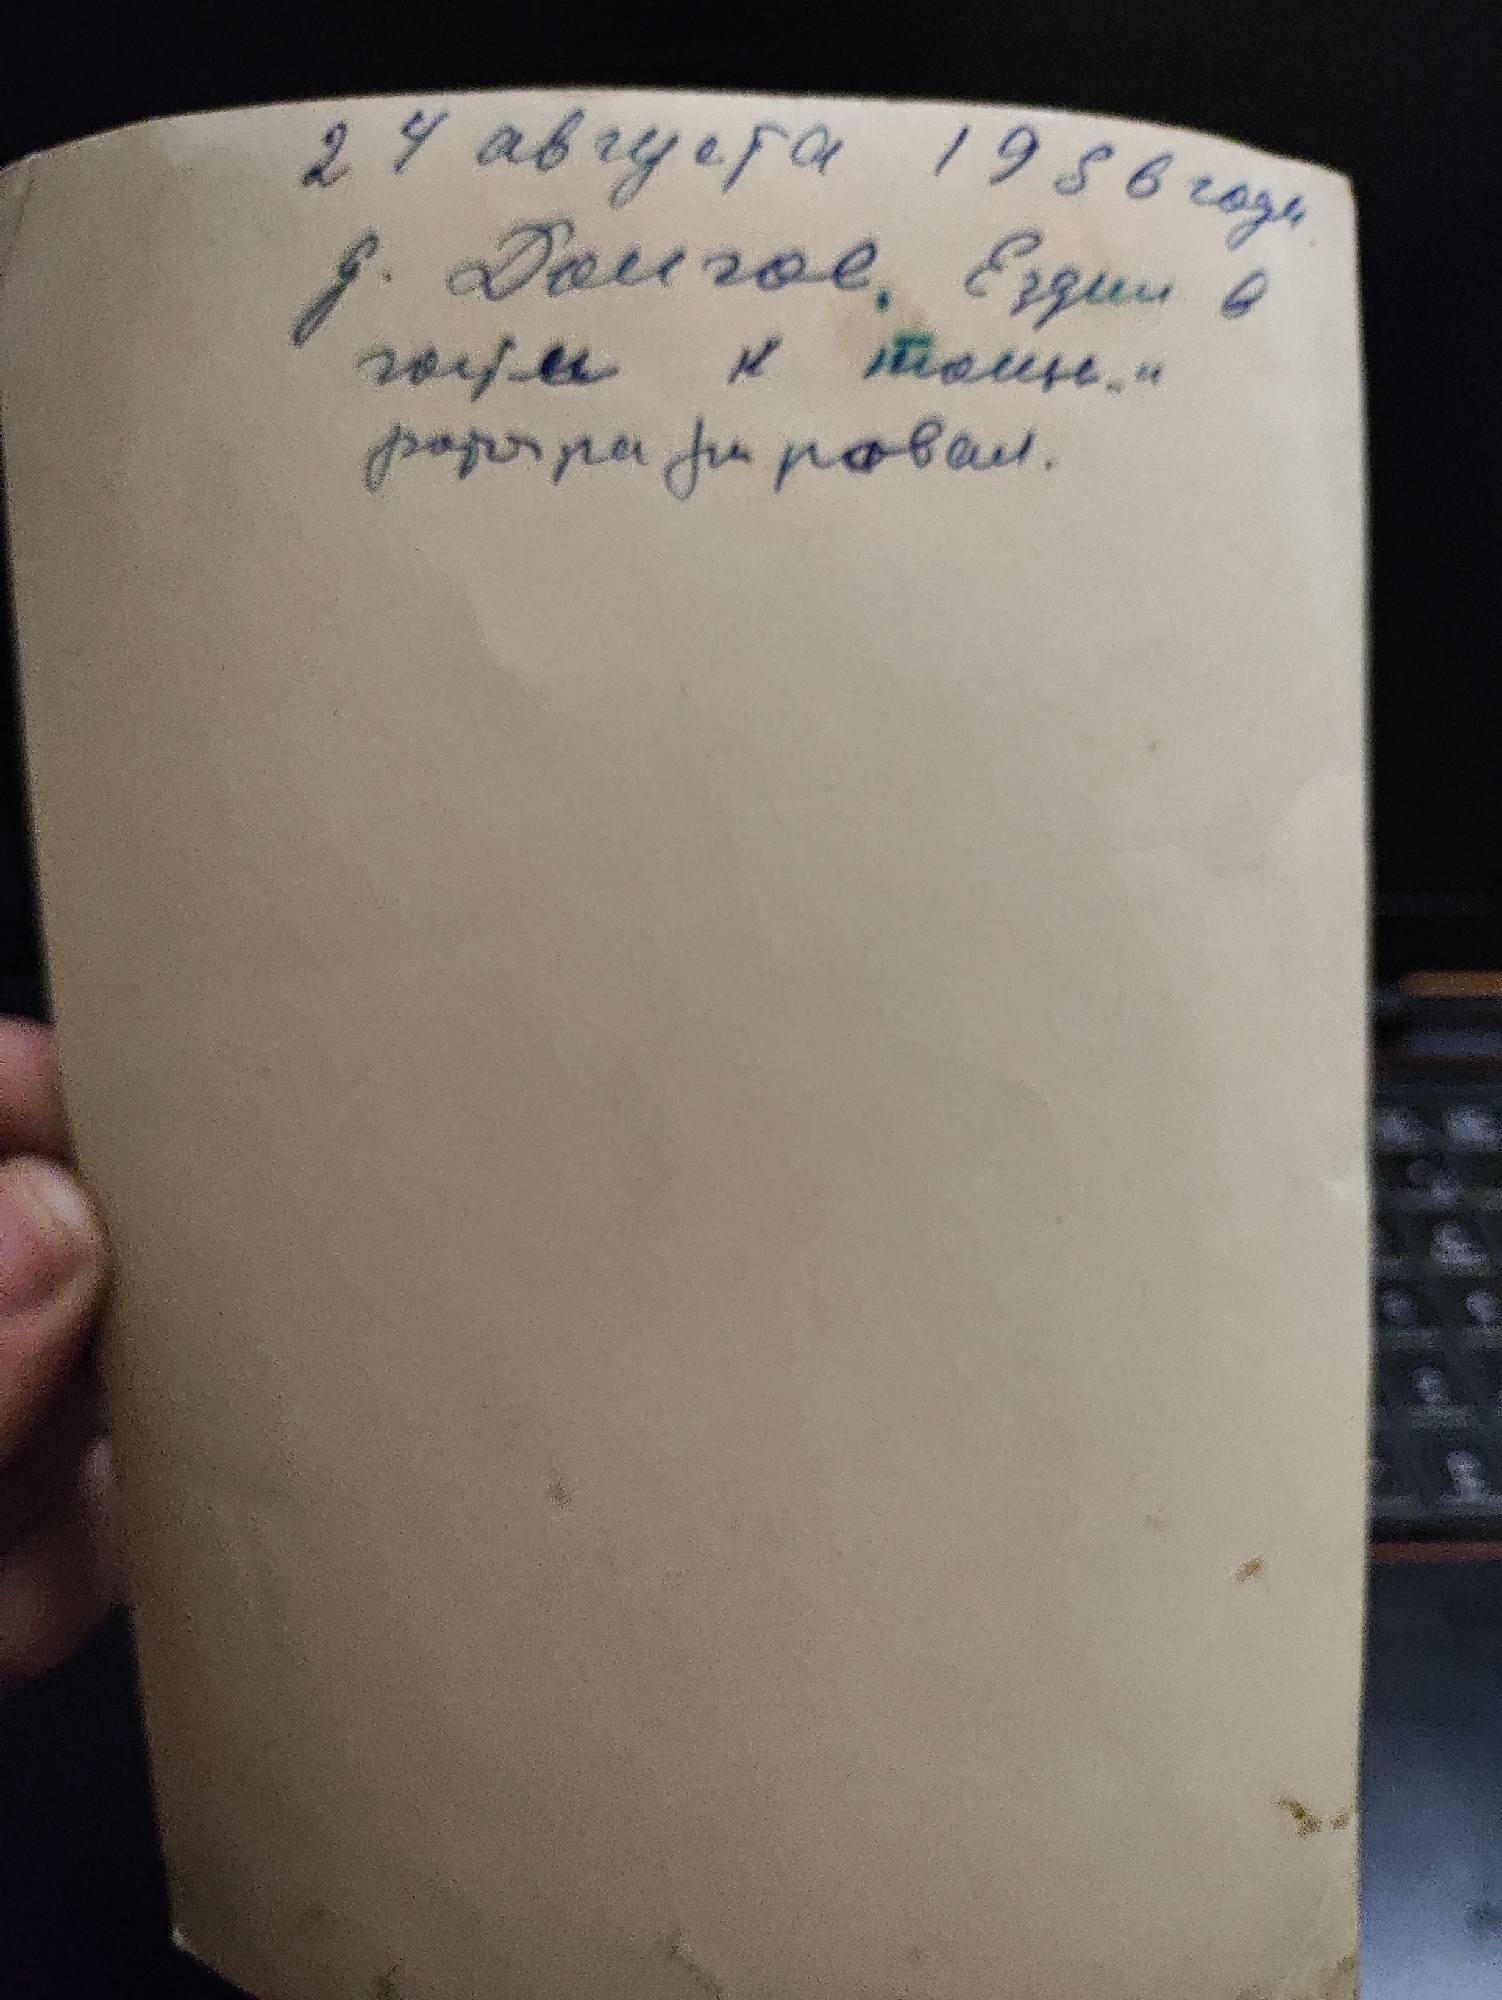 24 августа 1956 года.
д. Долгое. Ездил в
гости к и
фотографировал.